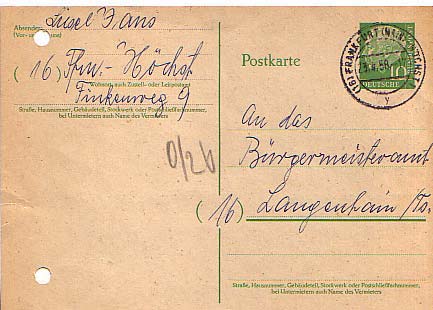 Absender:
(Vor- und Zuname)
Hans
(16) Ffm.- Höchst
Wohnort, auch Zustell- oder Leitpostamt
Finkenweg 9
Straße, Hausnummer, Gebäudeteil, Stockwerk oder Postschließfachnummer,
bei Untermietern auch Name des Vermieters
0/26
Postkarte
10
DEUTSCHE
(16) FRANKFURT (MAIN)
y
An das
Bürgermeisteramt
(16) Langenhain/Ts.
Straße, Hausnummer, Gebäudeteil, Stockwerk oder Postschließfachnummer,
bei Untermietern auch Name des Vermieters